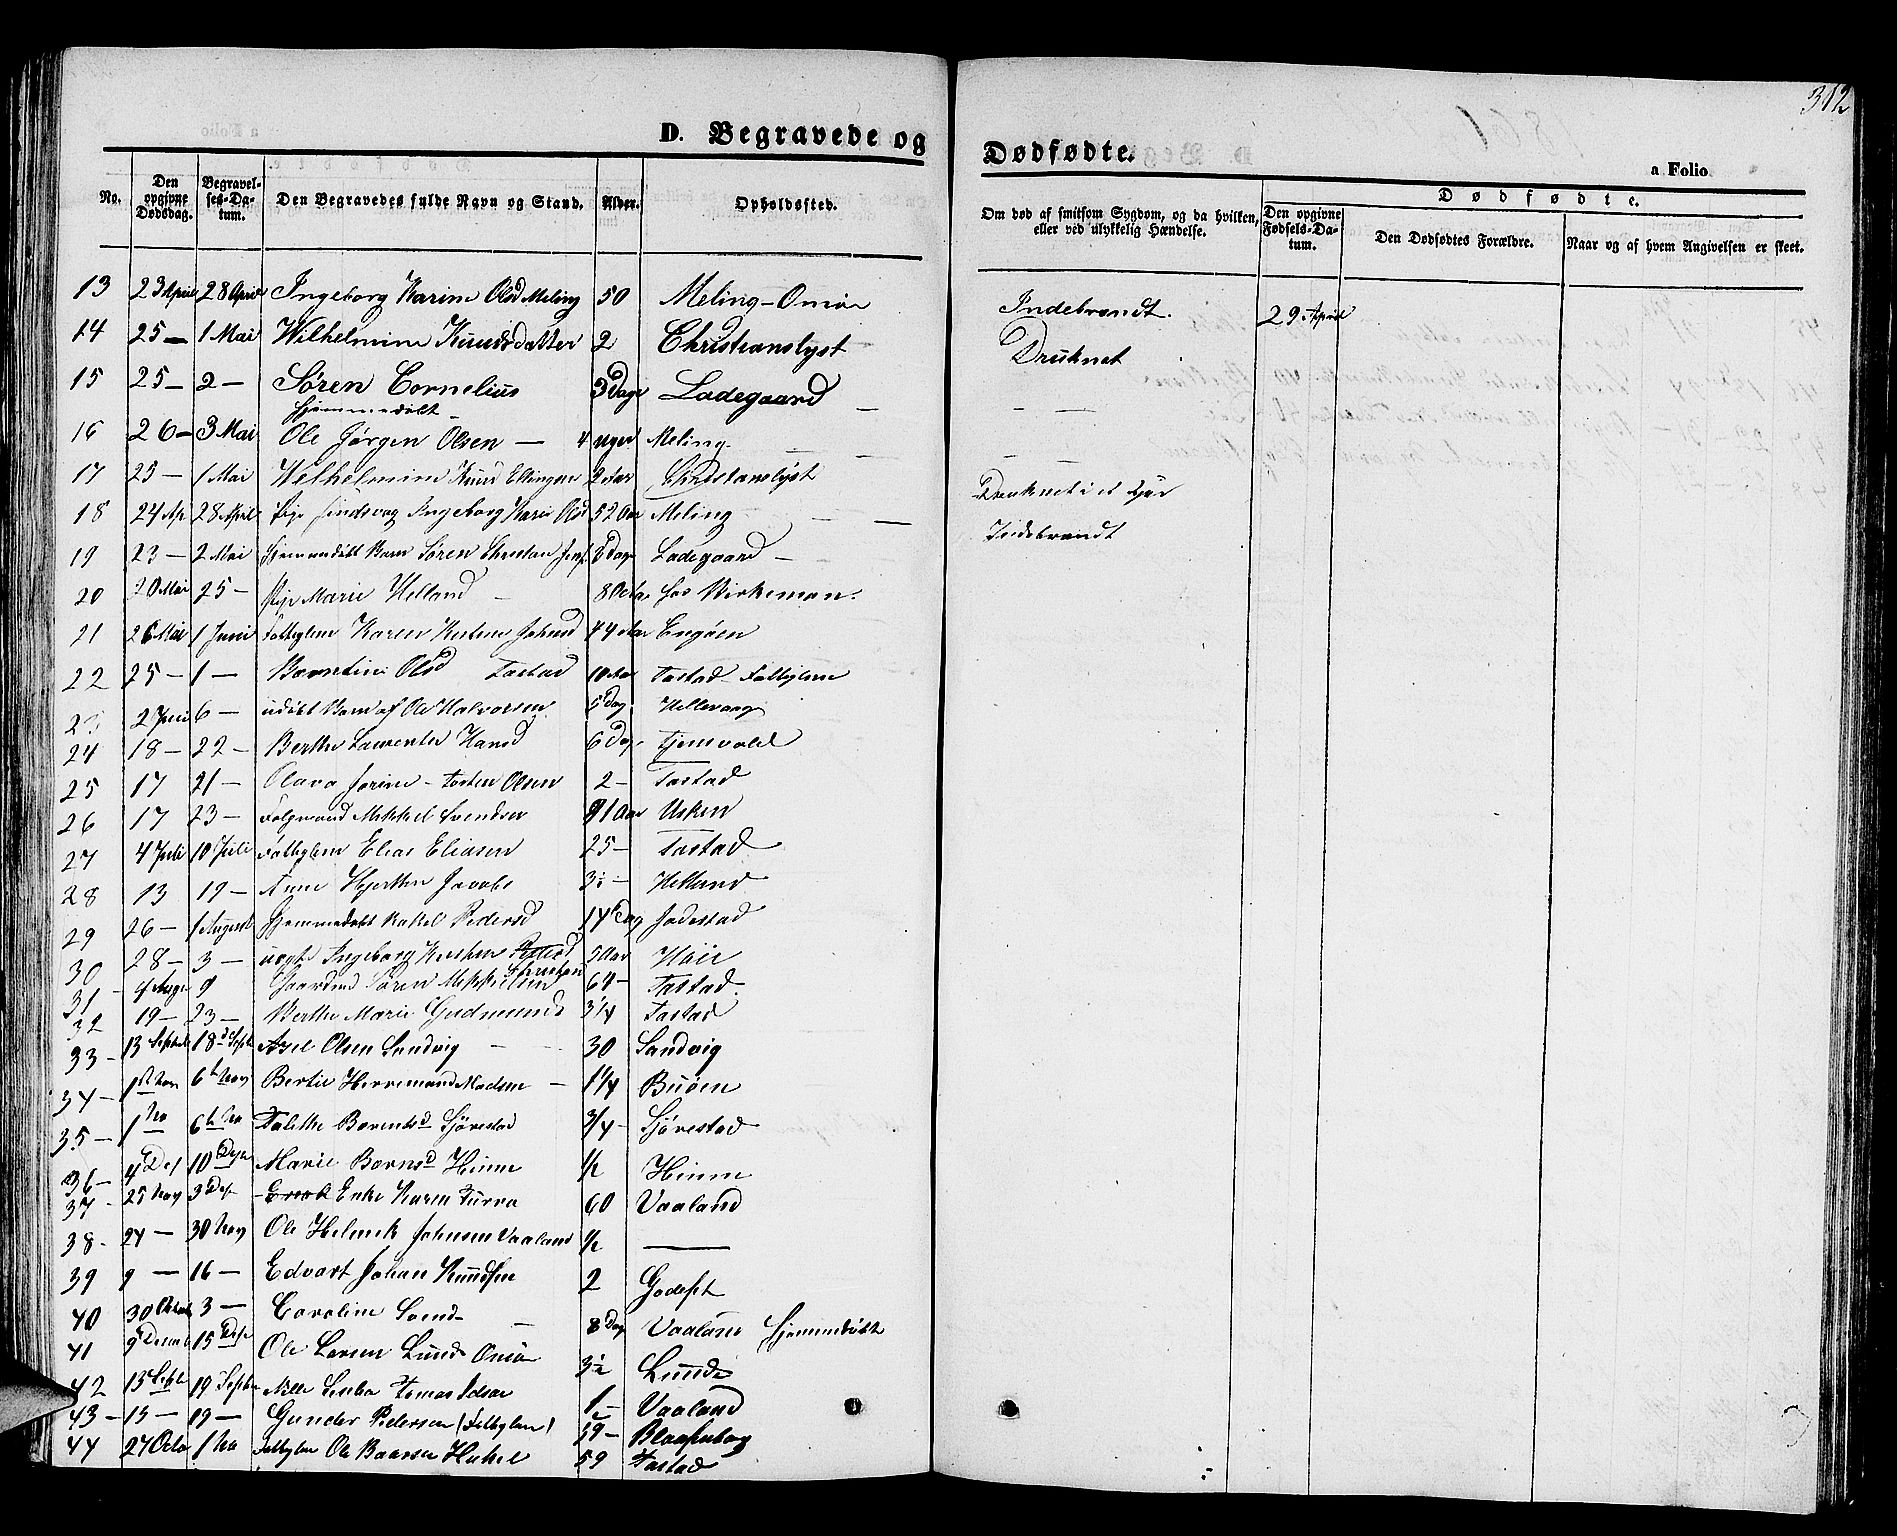 312
D. Begravede og Dødfødte.
a Folio
No. Den opgivne Dødsdag. Begravelses-Datum. Den Begravedes fulde Navn og Stand. Alder. Opholdssted. Om død af smitsom Sygdom, og da hvilken, eller ved ulykkelig Hændelse. Den opgivne Fødsels-Datum. Dødfødte. Den Dødfødtes Forældre. Naar og af hvem Angivelsen er skeet.
13 23 April 28 April Ingeborg Karine Olsd Meling 50 Meling-Omøe Indebrandt. 29 April
14 25 — 1 Mai Wilhelmine Knudsdatter 2 Christianslyst Druknet
15 25 — 2 — Søren Cornelius 3 Dage Ladegaard
hjemmedøbt
16 26 — 3 Mai Ole Jørgen Olsen — 4 uger Meling
17 25 — 1 Mai Wilhelmine Knud Ellingsen 2 Aar Christianslyst Druknet i et
18 24 Ap 28 April Pige Ingeborg Karie Olsd 52 Aar Meling Indebrandt
19 23 — 2 Mai hjemmedøbt Barn Søren Christian Dage Ladegaard —
20 20 Mai 25 — Pige Marie Helland 80 Aar hos Birkeman.
21 26 Mai 1 Juni Fattiglem Karen Kirstine Johnsd 44 Aar Engøen
22 25 — 1 — Berntine Olsd Tastad 10 Aar Tastad Fattiglem
23 2 Juni 6 — udøbt Barn af Ole Halvorsen 5 Dag Hillevaag
24 18 — 22 — Berthe Laurentse Hansd 6 Dage Tjensvold
25 17 21 — Olava Jorine — Torsten Olsen 2 — Tastad
26 17 23 — Folgemand Mikkel Svendsen 91 Aar Usken
27 4 Juli 10 Juli Fattiglem Elias Eliasen 25 — Tastad
28 13 19 — Anne Hjerthine Jacobs 3½ — Helland
29 26 — 1 August hjemmedøbt Rakel Pedersd 14 Dag Jadestad
30 28 — 3 — ugte Ingeborg Kirstine 5 Aar Haie
31 4 Auge 9 Gaardmd Søren Mikkelsen Christian 64 — Tastad
32 19 — 23 — Berthe Marie Gudmunds 3¼ Tastad
33 — 13 Septbr 18d Sept Axel Olsen Sandvig 30 Sandvig
34 — 1ste Nov 6te Nov Bertie Herremand Madsen — 1¼ Buøen
35 — 1 No 6te No Talethe Berentsd Sjørestad ¾ Sjørestad
36 — 4 Des 10 Des Marie Berntsd Hinne ½ Hinne
37 25 Nov 3 Des Enke Karen Turva 60 Vaaland
38 — 24 — 30 Nov Ole Helmik Johnsen Vaaland ½ ——
39 9 — 16 — Edvart Johan Knudsen 2 Godeset
40 30 Octob 3 — Caroline Svend 8 Dag Vaaland hjemmedøbt
41 9 Decemb 15 Des Ole Larsen Lunde Omøe 3½ Lunde
42 13 Septb 19 Septbr Nille Tomas 1 — Vaaland
43 — 15 — 19 — Gunder Pedersen (Fattiglem) 59 — Blaasenborg
44 27 Octo 1 No Fattiglem Ole Baarsen Hakel 59 Tastad